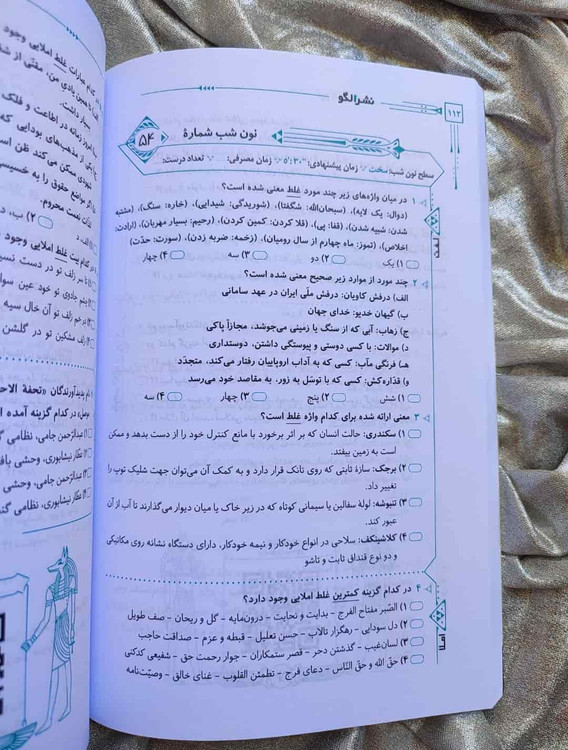 ۱۱۲
نشرالگو
نون شب شمارهٔ
۵۴
سطح نون شب: سخت زمان پیشنهادی: ۵':۳۰" زمان مصرفی: تعداد درست:
لغت
۱ در میان واژه‌های زیر چند مورد غلط معنی شده است؟
(دوال: یک لایه)، (سبحان‌الله: شگفتا)، (شوریدگی: شیدایی)، (خاره: سنگ)، (مشتبه
شدن: شبیه شدن)، (قفا: پی)، (قلا کردن: کمین کردن)، (رحیم: بسیار مهربان)، (ارادت:
اخلاص)، (تموز: ماه چهارم از سال رومیان)، (زخمه: ضربه زدن)، (سورت: حدّت)
۱) یک ۲) دو ۳) سه ۴) چهار
۲ چند مورد از موارد زیر صحیح معنی شده است؟
الف) درفش کاویان: درفش ملّی ایران در عهد سامانی
ب) گیهان خدیو: خدای جهان
ج) زهاب: آبی که از سنگ یا زمینی می‌جوشد، مجازاً پاکی
د) موالات: با کسی دوستی و پیوستگی داشتن، دوستداری
هـ) فرنگی مآب: کسی که به آداب اروپاییان رفتار می‌کند، متجدّد
و) قدّاره‌کش: کسی که با توسّل به زور، به مقاصد خود می‌رسد
۱) شش ۲) پنج ۳) چهار ۴) سه
۳ معنی ارائه شده برای کدام واژه غلط است؟
۱) سکندری: حالت انسان که بر اثر برخورد با مانع کنترل خود را از دست بدهد و ممکن
است به زمین بیفتد.
۲) برجک: سازهٔ ثابتی که روی تانک قرار دارد و به کمک آن می‌توان جهت شلیک توپ را
تغییر داد.
۳) تنبوشه: لولهٔ سفالین یا سیمانی کوتاه که در زیر خاک یا میان دیوار می‌گذارند تا آب از آن
عبور کند.
۴) کلاشینکف: سلاحی در انواع خودکار و نیمه خودکار، دارای دستگاه نشانه روی مکانیکی
و دو نوع قنداق ثابت و تاشو
املا
۴ در کدام گزینه کمترین غلط املایی وجود دارد؟
۱) الصّبر مفتاح الفرج – بدایت و نحایت – درون‌مایه – گل و ریحان – صف طویل
۲) دل سودایی – رهگزار تالاب – حسن تعلیل – قبطه و عزم – صداقت حاجب
۳) لسان‌غیب – گذشتن دحر – قصر ستمکاران – جوار رحمت حق – شفیعی کدکنی
۴) حقّ الله و حقّ النّاس – دعای فرج – تطمئن القلوب – غنای خالق – وصیّت‌نامه